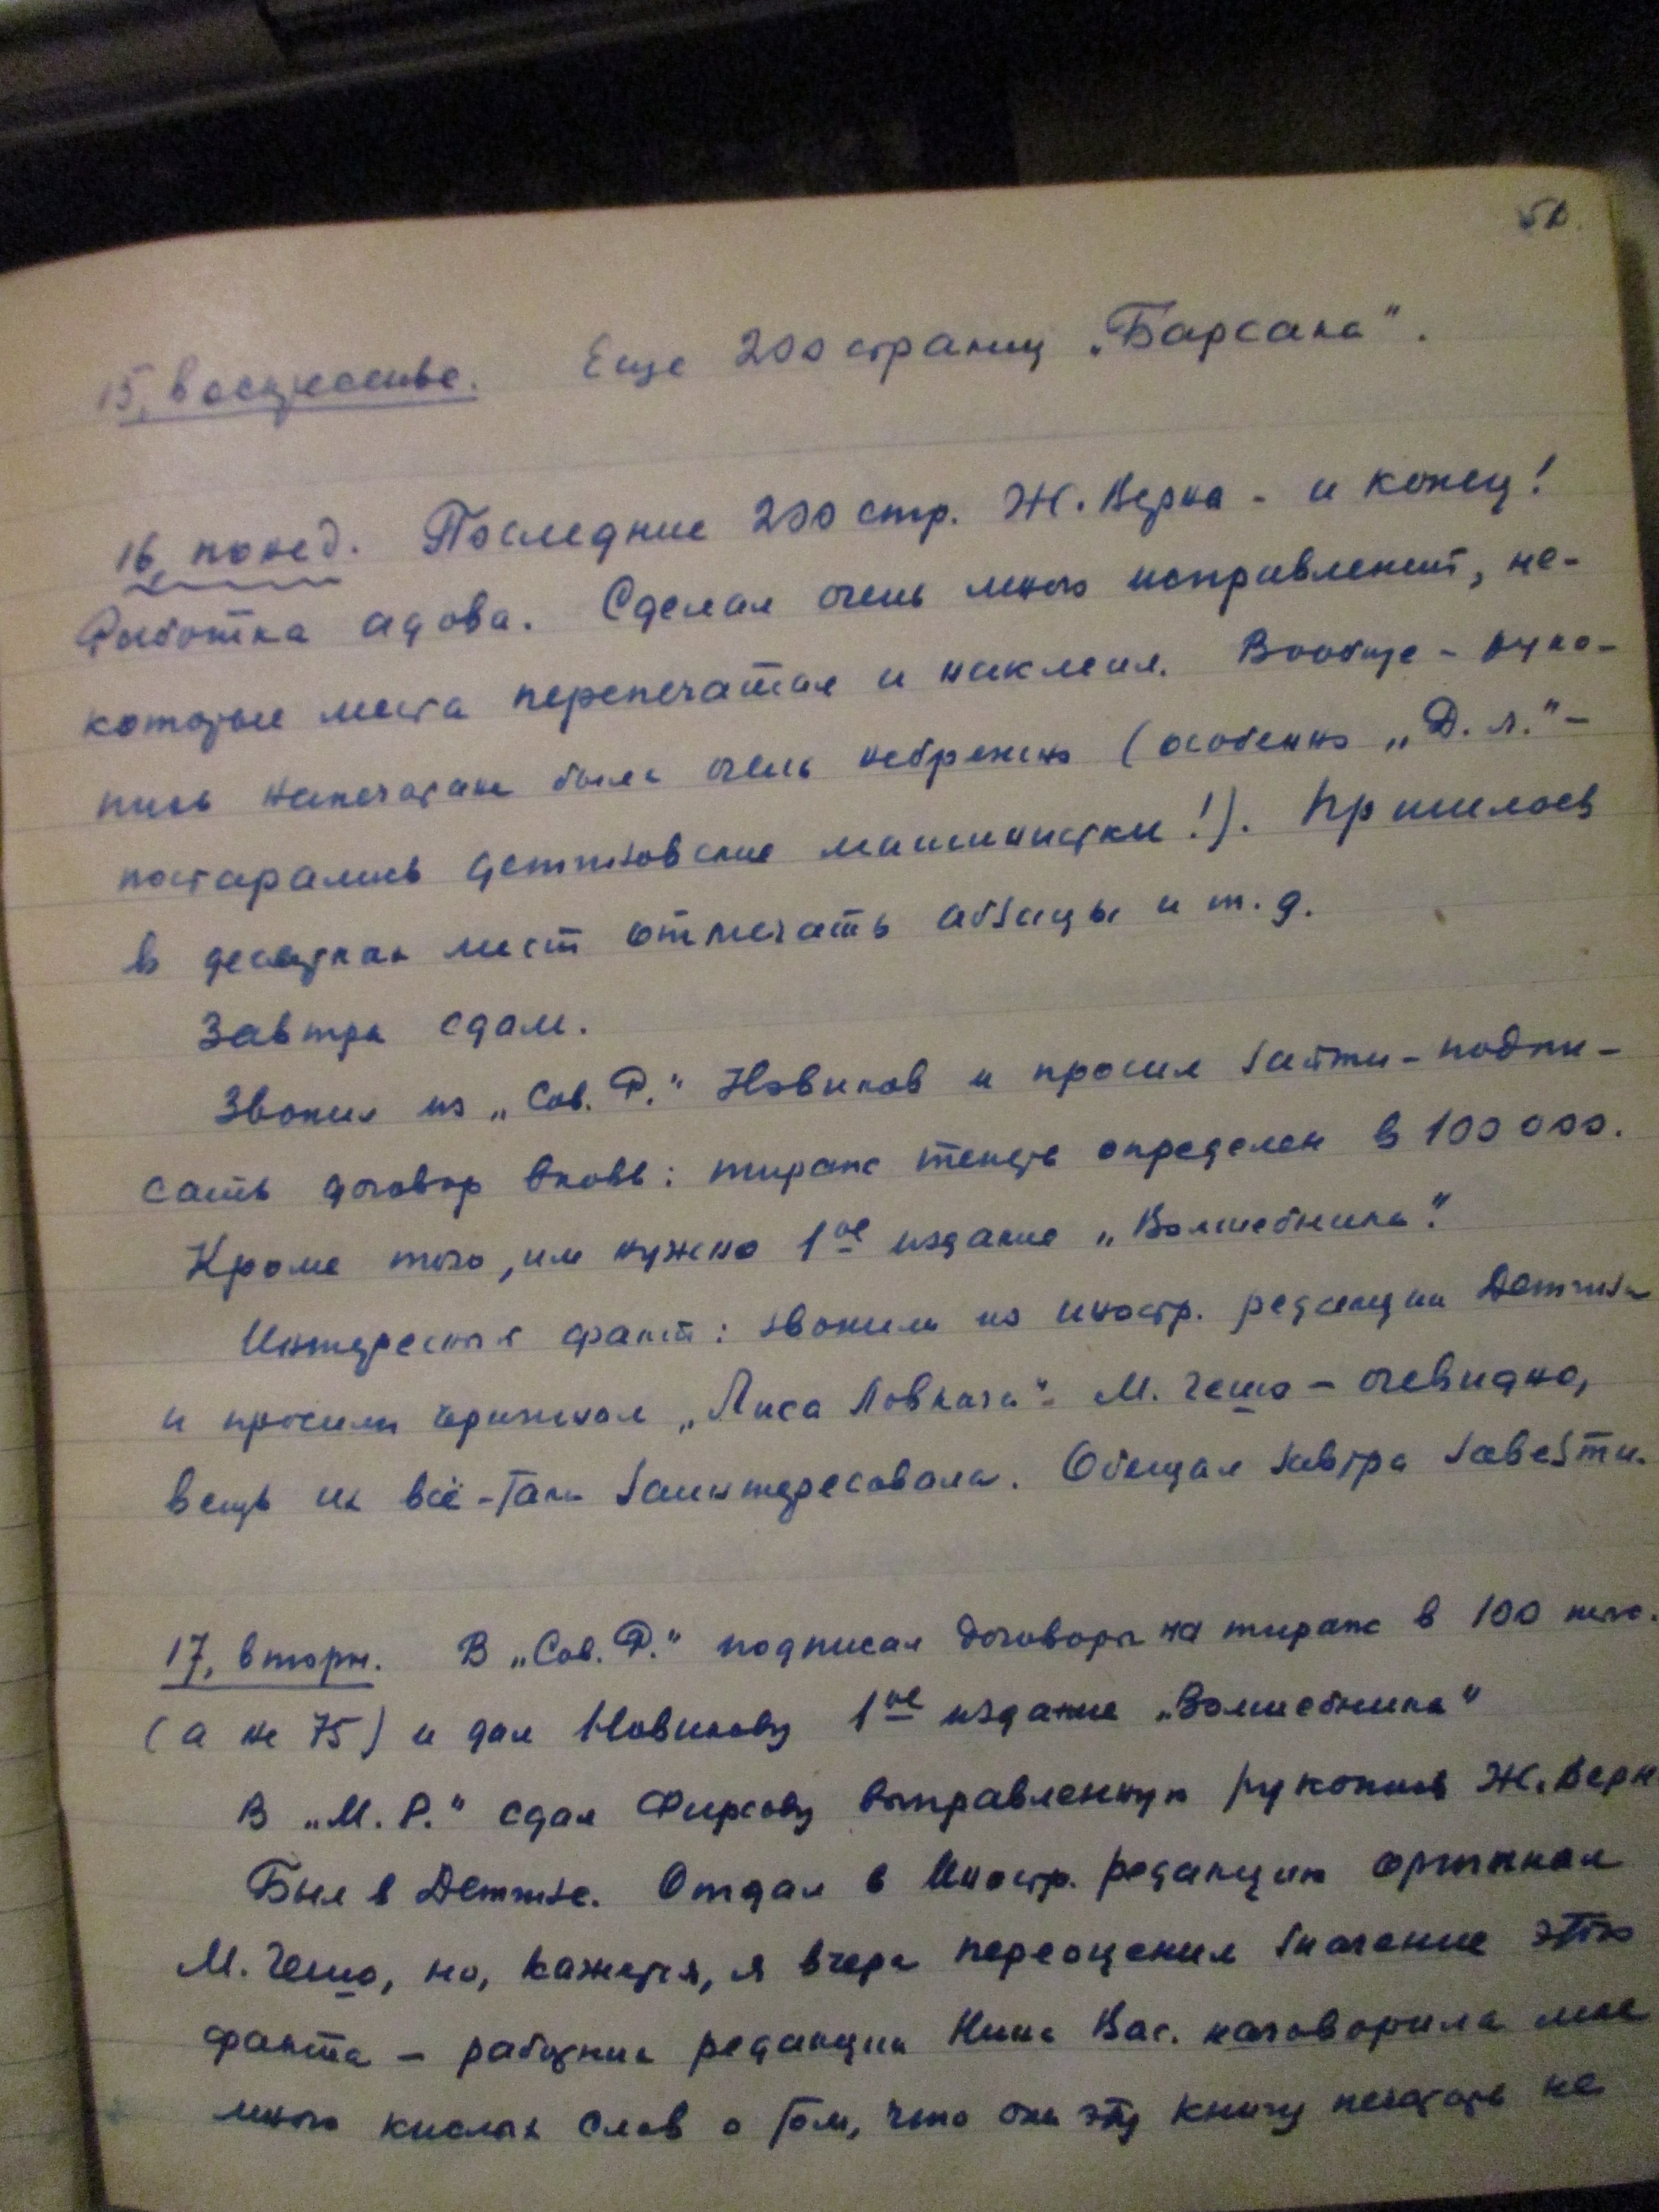 15, воскресенье. Еще 200 страниц „Барсака".
16, понед. Последние 200 стр. Ж. Верна - и конец!
Работка адова. Сделал очень много исправлений, не-
которые места перепечатал и наклеил. Вообще - руко-
пись напечатана была очень небрежно (особенно „Д. л." -
постарались детгизовские машинистки!). Пришлось
в десятках мест отмечать абзацы и т. д.
Завтра сдам.
Звонил из „Сов. Р." Новиков и просил зайти - подпи-
сать договор вновь: тираж теперь определен в 100 000.
Кроме того, им нужно 1ое издание „Волшебника".
Интересный факт: звонили из иностр. редакции Детгиза
и просили оригинал „Лиса Ловкача" М. Чешо - очевидно,
вещь их всё-таки заинтересовала. Обещал завтра завезти.
17, вторн. В „Сов. Р." подписал договора на тираж в 100 тыс.
(а не 75) и дал Новикову 1ое издание „Волшебника"
В „М. Р." сдал Фирсову выправленную рукопись Ж. Верн
Был в Детгизе. Отдал в Иностр. редакцию оригинал
М. Чешо, но, кажется, я вчера переоценил значение этого
факта - работник редакции Нина Вас. наговорила мне
много кислых слов о том, что они эту книгу печатать не